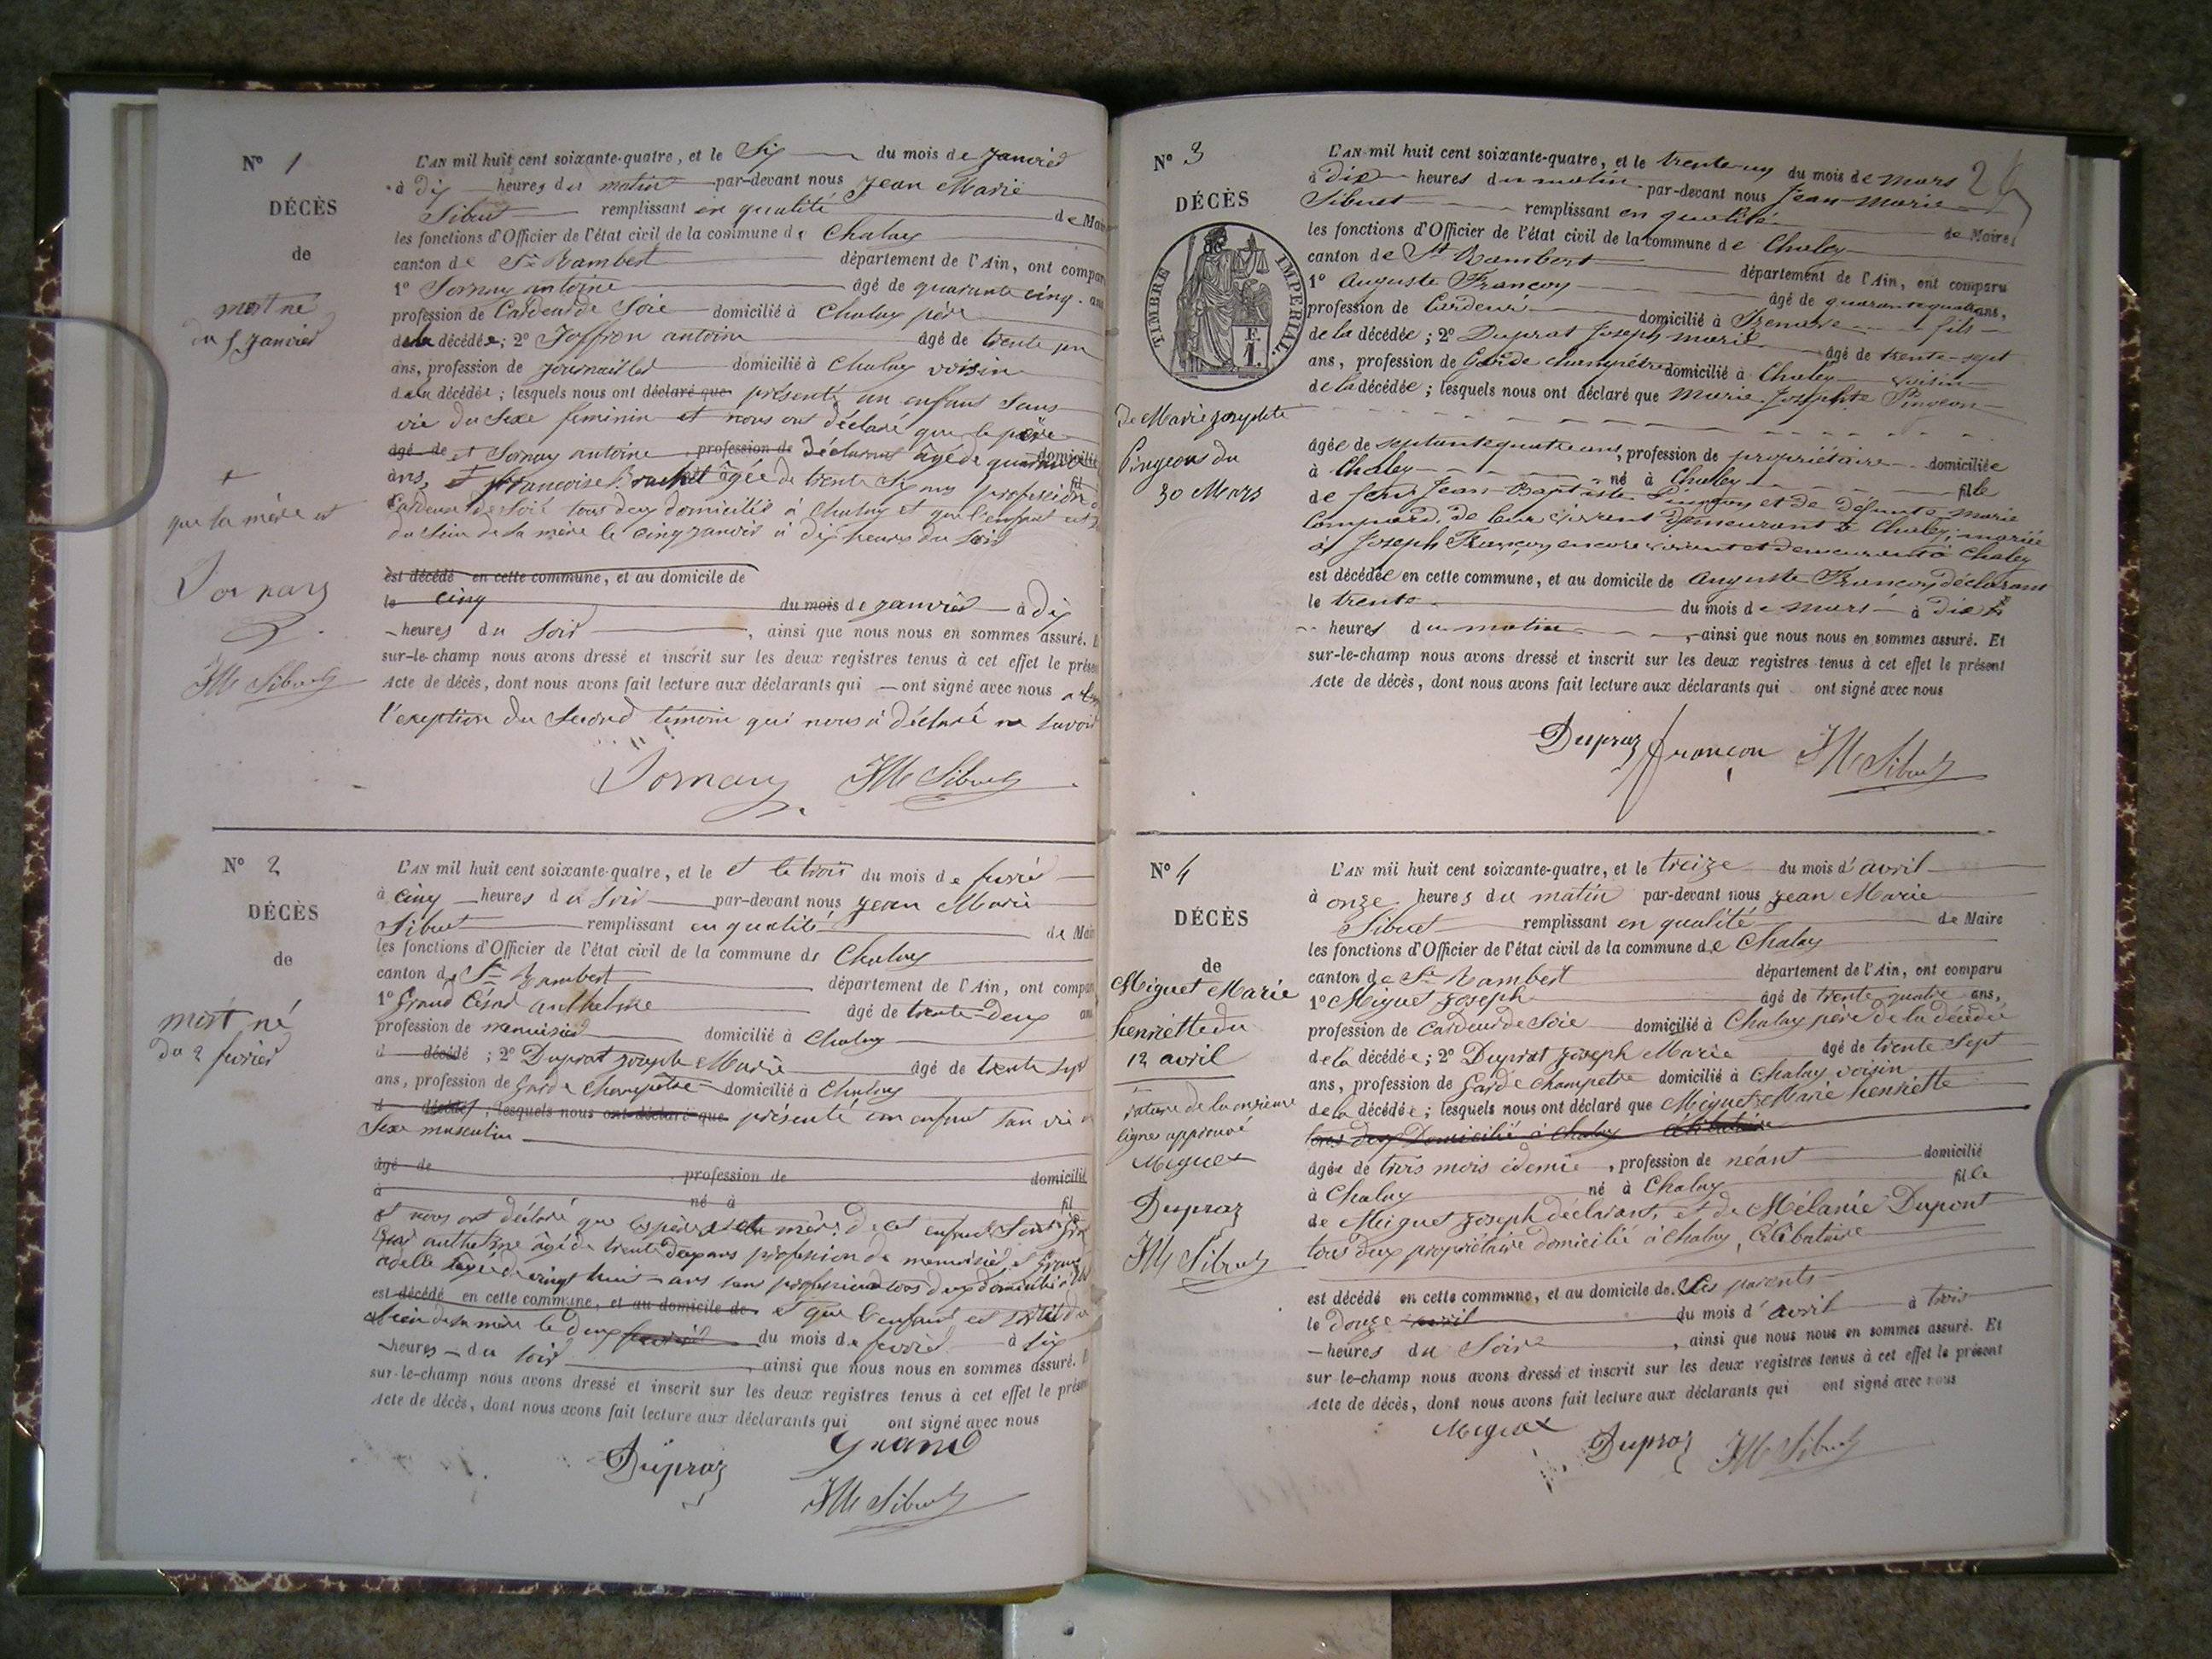 N° 1
DÉCÈS
de
mort né
du 5 janvier
L'AN mil huit cent soixante-quatre, et le Six du mois de janvier
à dix heures du matin par-devant nous Jean Marie
Sibuet remplissant en qualité de Mai
les fonctions d'Officier de l'état civil de la commune de Chaley
canton de St Rambert département de l'Ain, ont compar
1° Sornay antoine âgé de quarante cinq ans
profession de Cardeur de Soie domicilié à Chaley père
de la décédée; 2° Joffron antoine âgé de trente un
ans, profession de journaillier domicilié à Chaley voisin
de la décédée; lesquels nous ont déclaré que présenté un enfant sans
vie du Sexe féminin et nous ont déclaré que le père
âgé de et Sornay antoine profession de déclarant âgé de quarante domicilié
ans, + françoise âgée de trente six ans profession
Cardeuse de Soie tous deux domiciliés à Chaley et que l'enfant est
du Sein de sa mère le cinq janvier à dix heures du soir
est décédé en cette commune, et au domicile de
le cinq du mois de janvier à dix
heures du soir, ainsi que nous nous en sommes assuré. E
sur-le-champ nous avons dressé et inscrit sur les deux registres tenus à cet effet le prése
Acte de décès, dont nous avons fait lecture aux déclarants qui ont signé avec nous à
l'exeption du Second témoin qui nous à déclaré ne savoir
+
que la mère est
Sornay
JM Sibuet
Sornay JM Sibuet
N° 2
DÉCÈS
de
mort né
du 2 fevrier
L'AN mil huit cent soixante-quatre, et le et le trois du mois de fevrié
à cinq heures du soir par-devant nous jean Marie
Sibuet remplissant en qualité de Mair
les fonctions d'Officier de l'état civil de la commune de Chaley
canton de St Rambert département de l'Ain, ont compar
1° Grand César anthelme âgé de trente-deux ans
profession de menuisier domicilié à Chaley
d décédé; 2° Duprat joseph Marie âgé de trente sept
ans, profession de garde Champêtre domicilié à Chaley
d décédé; lesquels nous ont déclaré que présenté un enfant san vie
Sexe masculin
âgé de profession de domicilié
à né à fil
et nous ont déclaré que les père et mère de cet enfant sont
anthelme âgé de trente deux ans profession de menuisier et
adelle âgée de vingt huit ans sans profession tous deux domicilié
est décédé en cette commune, et au domicile de et que l'enfant est sorti du
Sein de sa mère le deux fevrier du mois de fevrier à six
heures du soir, ainsi que nous nous en sommes assuré. E
sur-le-champ nous avons dressé et inscrit sur les deux registres tenus à cet effet le prése
Acte de décès, dont nous avons fait lecture aux déclarants qui ont signé avec nous
Dupraz Grand
JM Sibuet
N° 3
DÉCÈS
de
TIMBRE IMPERIAL.
E.
1.
de Marie josephte
Pingeon du
30 Mars
L'AN mil huit cent soixante-quatre, et le trente-un du mois de mars
à Dix heures du matin par-devant nous Jean-Marie
Sibuet remplissant en qualité de Maire
les fonctions d'Officier de l'état civil de la commune de Chaley
canton de St Rambert département de l'Ain, ont comparu
1° Auguste Françon âgé de quarante quatre ans,
profession de Cardeur domicilié à Tenay fils
de la décédée; 2° Duprat Joseph marie âgé de trente-sept
ans, profession de Garde champêtre domicilié à Chaley voisin
de la décédée; lesquels nous ont déclaré que Marie Josephte Pingeon
âgée de septante quatre ans, profession de propriétaire domiciliée
à Chaley né à Chaley fille
de feu Jean-Baptiste Pingeon et de Défunte Marie
de leur vivant Demeurant à Chaley, mariée
à Joseph Françon encore vivant et demeurant à Chaley
est décédée en cette commune, et au domicile de Auguste Françon déclarant
le trente du mois de mars à dix
heures du matin, ainsi que nous nous en sommes assuré. Et
sur-le-champ nous avons dressé et inscrit sur les deux registres tenus à cet effet le présent
Acte de décès, dont nous avons fait lecture aux déclarants qui ont signé avec nous
Dupraz françon JM Sibuet
N° 4
DÉCÈS
de
Miguet Marie
henriette du
12 avril
rature de la onzieme
ligne approuvé
Miguet
Dupraz
JM Sibuet
L'AN mil huit cent soixante-quatre, et le treize du mois d'avril
à onze heures du matin par-devant nous jean Marie
Sibuet remplissant en qualité de Maire
les fonctions d'Officier de l'état civil de la commune de Chaley
canton de St Rambert département de l'Ain, ont comparu
1° Miguet joseph âgé de trente quatre ans,
profession de Cardeur de Soie domicilié à Chaley père de la décédée
de la décédée; 2° Duprat joseph Marie âgé de trente sept
ans, profession de Garde Champetre domicilié à Chaley voisin
de la décédée; lesquels nous ont déclaré que Miguet Marie henriette
tous deux Domicilié à Chaley Célibataire
âgée de trois mois e demie, profession de néant domicilié
à Chaley né à Chaley fille
de Miguet joseph déclarant, et de Mélanie Dupont
tous deux propriétaire domicilié à Chaley, Célibataire
est décédé en cette commune, et au domicile de Ses parents
le Douze avril du mois d'avril à trois
heures du Soir, ainsi que nous nous en sommes assuré. Et
sur-le-champ nous avons dressé et inscrit sur les deux registres tenus à cet effet le présent
Acte de décès, dont nous avons fait lecture aux déclarants qui ont signé avec nous
Miguet Dupraz JM Sibuet